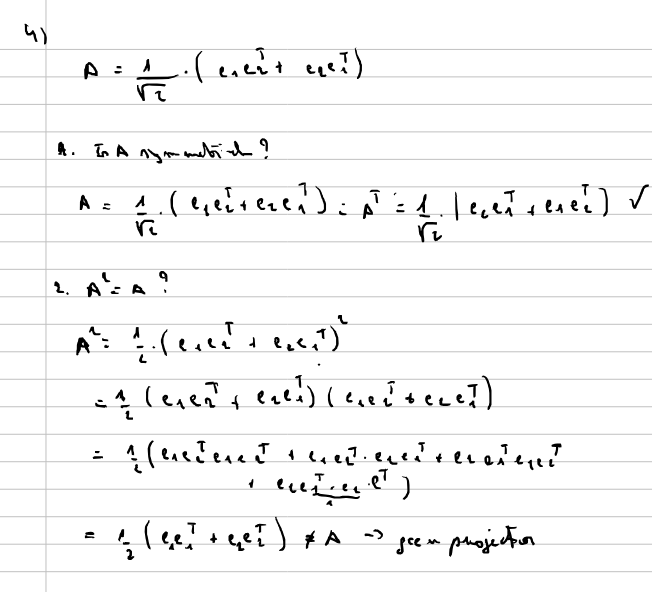 4)
A = 1/√2 · ( e₁e₂ᵀ + e₂e₁ᵀ )
1. Is A symmetrisch ?
A = 1/√2 · ( e₁e₂ᵀ + e₂e₁ᵀ ) = Aᵀ = 1/√2 · ( e₂e₁ᵀ + e₁e₂ᵀ ) ✓
2. A² = A ?
A² = 1/2 · ( e₁e₂ᵀ + e₂e₁ᵀ )²
= 1/2 ( e₁e₂ᵀ + e₂e₁ᵀ ) ( e₁e₂ᵀ + e₂e₁ᵀ )
= 1/2 ( e₁e₂ᵀe₁e₂ᵀ + e₁e₂ᵀ · e₂e₁ᵀ + e₂e₁ᵀe₁e₂ᵀ
+ e₂e₁ᵀ · e₂ · eᵀ )
1
= 1/2 ( e₁e₁ᵀ + e₂e₂ᵀ ) ≠ A → geen projector